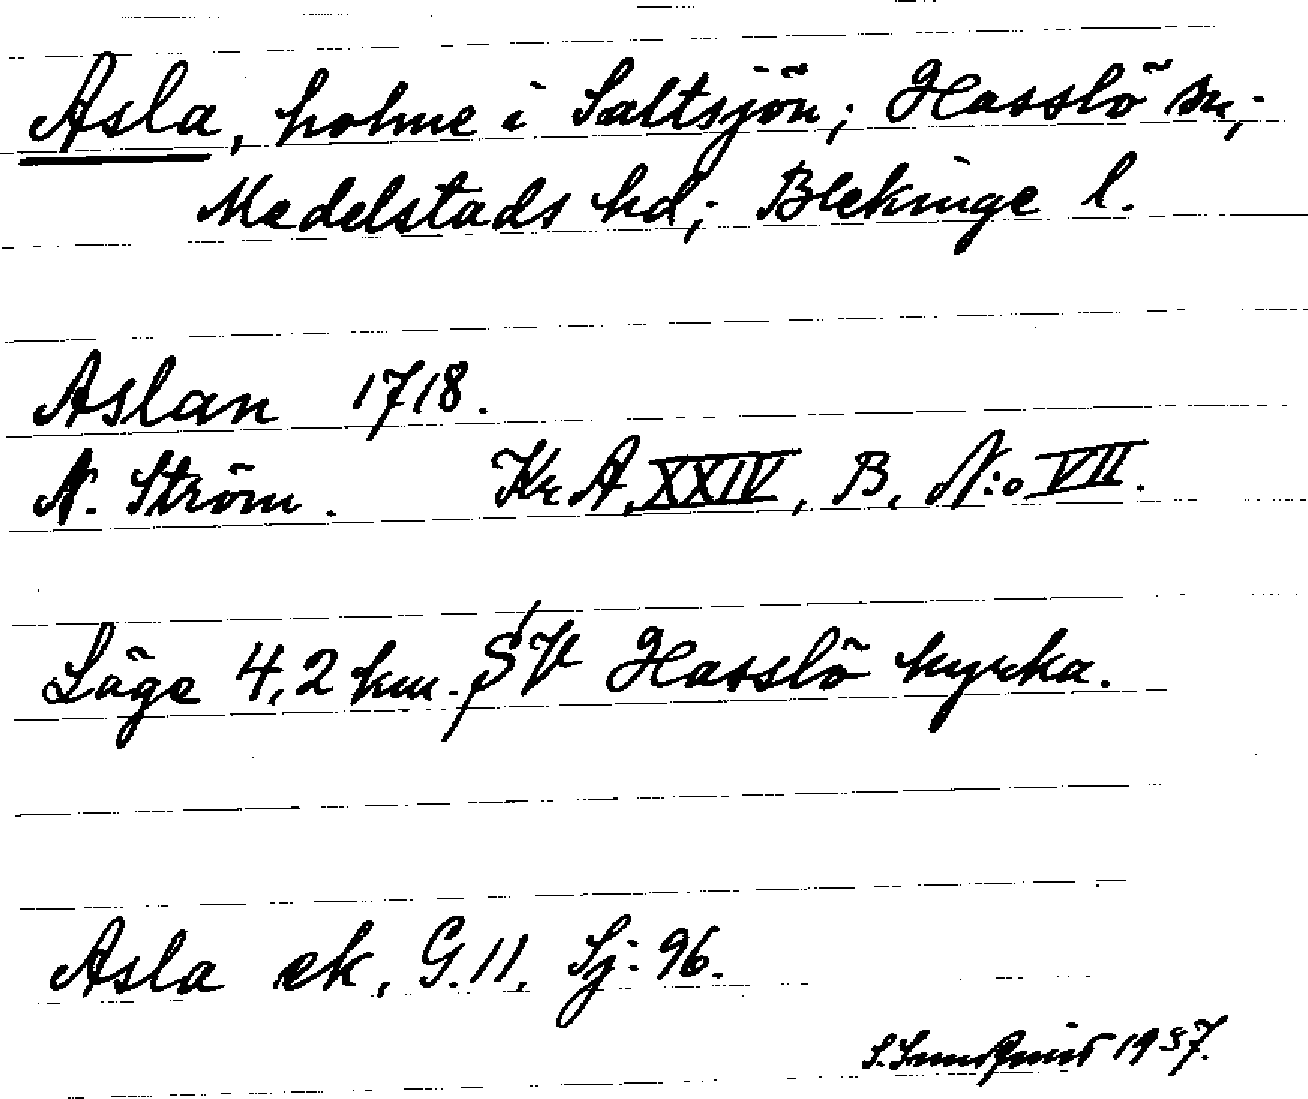 Asla, holme i Saltsjön; Hasslö sn;
Medelstads hd; Blekinge l.
Aslan 1718.
N. Ström. Kr A, XXIV, B, N:o VII.
Läge 4,2 km. SV Hasslö kyrka.
Asla ek, G.11, Sj: 96.
1937.